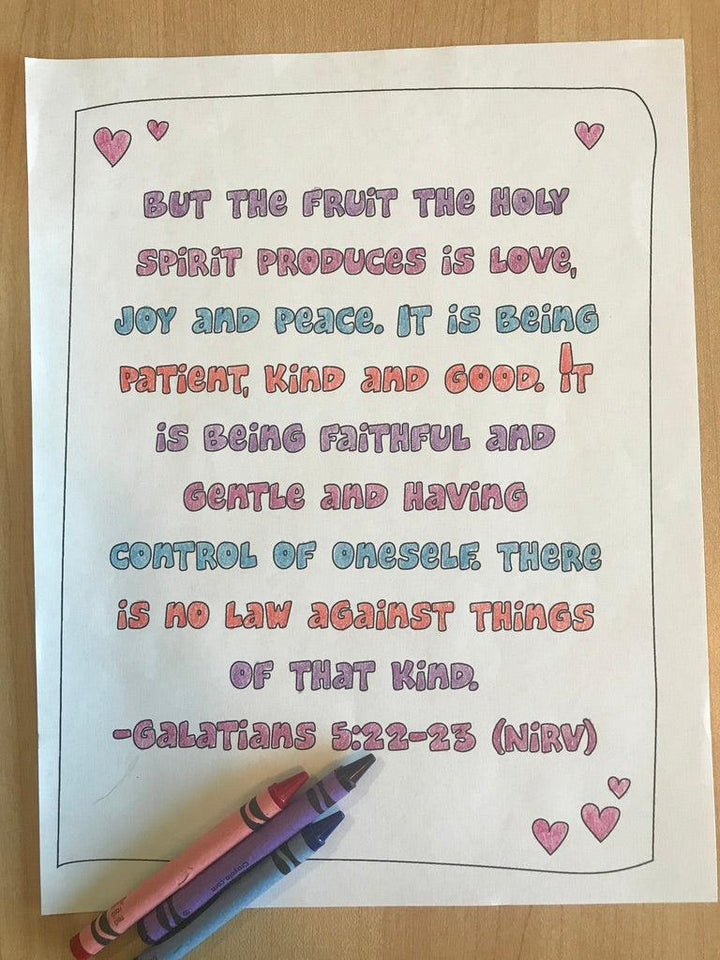 But the fruit the Holy
Spirit produces is love,
joy and peace. It is being
patient, kind and good. It
is being faithful and
gentle and having
control of oneself. There
is no law against things
of that kind.
-Galatians 5:22-23 (NiRV)
Crayola.com